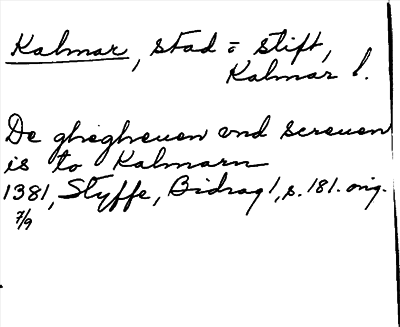 Kalmar, stad = stift,
Kalmar l.
De ghegheuen vnd screuen
is to Kalmarn
1381, Styffe, Bidrag 1, s. 181. orig.
7/9